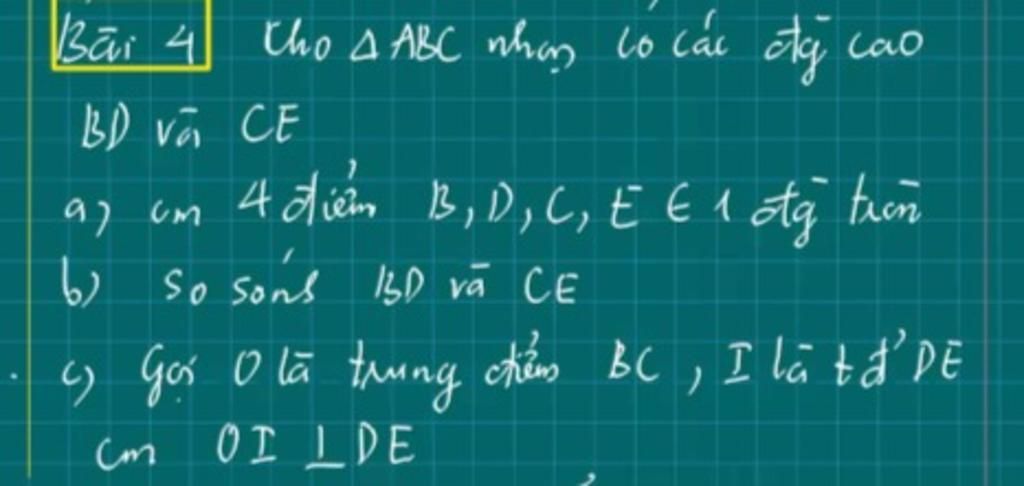 Bài 4 Cho Δ ABC nhọn có các đg cao
BD và CE
a) cm 4 điểm B, D, C, E ∈ 1 đg tròn
b) so sánh BD và CE
c) Gọi O là trung điểm BC, I là t đ' DE
cm OI ⊥ DE